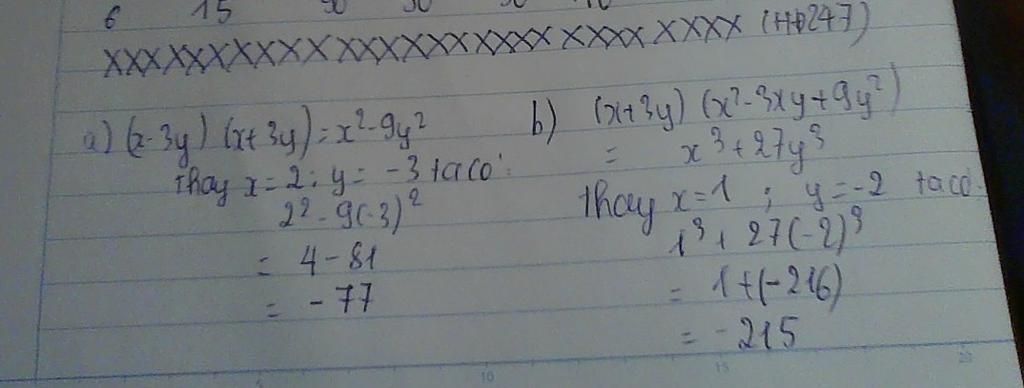 6 15 30 30
XXXXXXXXXXXXXXXXXXXXXXXXXXXX (HĐ247)
a) (x-3y) (x+3y) = x²-9y²
Thay x=2; y= -3 ta có:
2²-9(-3)²
= 4-81
= -77
b) (x+3y) (x²-3xy+9y²)
= x³+27y³
Thay x=1 ; y=-2 ta có:
1³+27(-2)³
= 1+(-216)
= -215
5 10 15 20